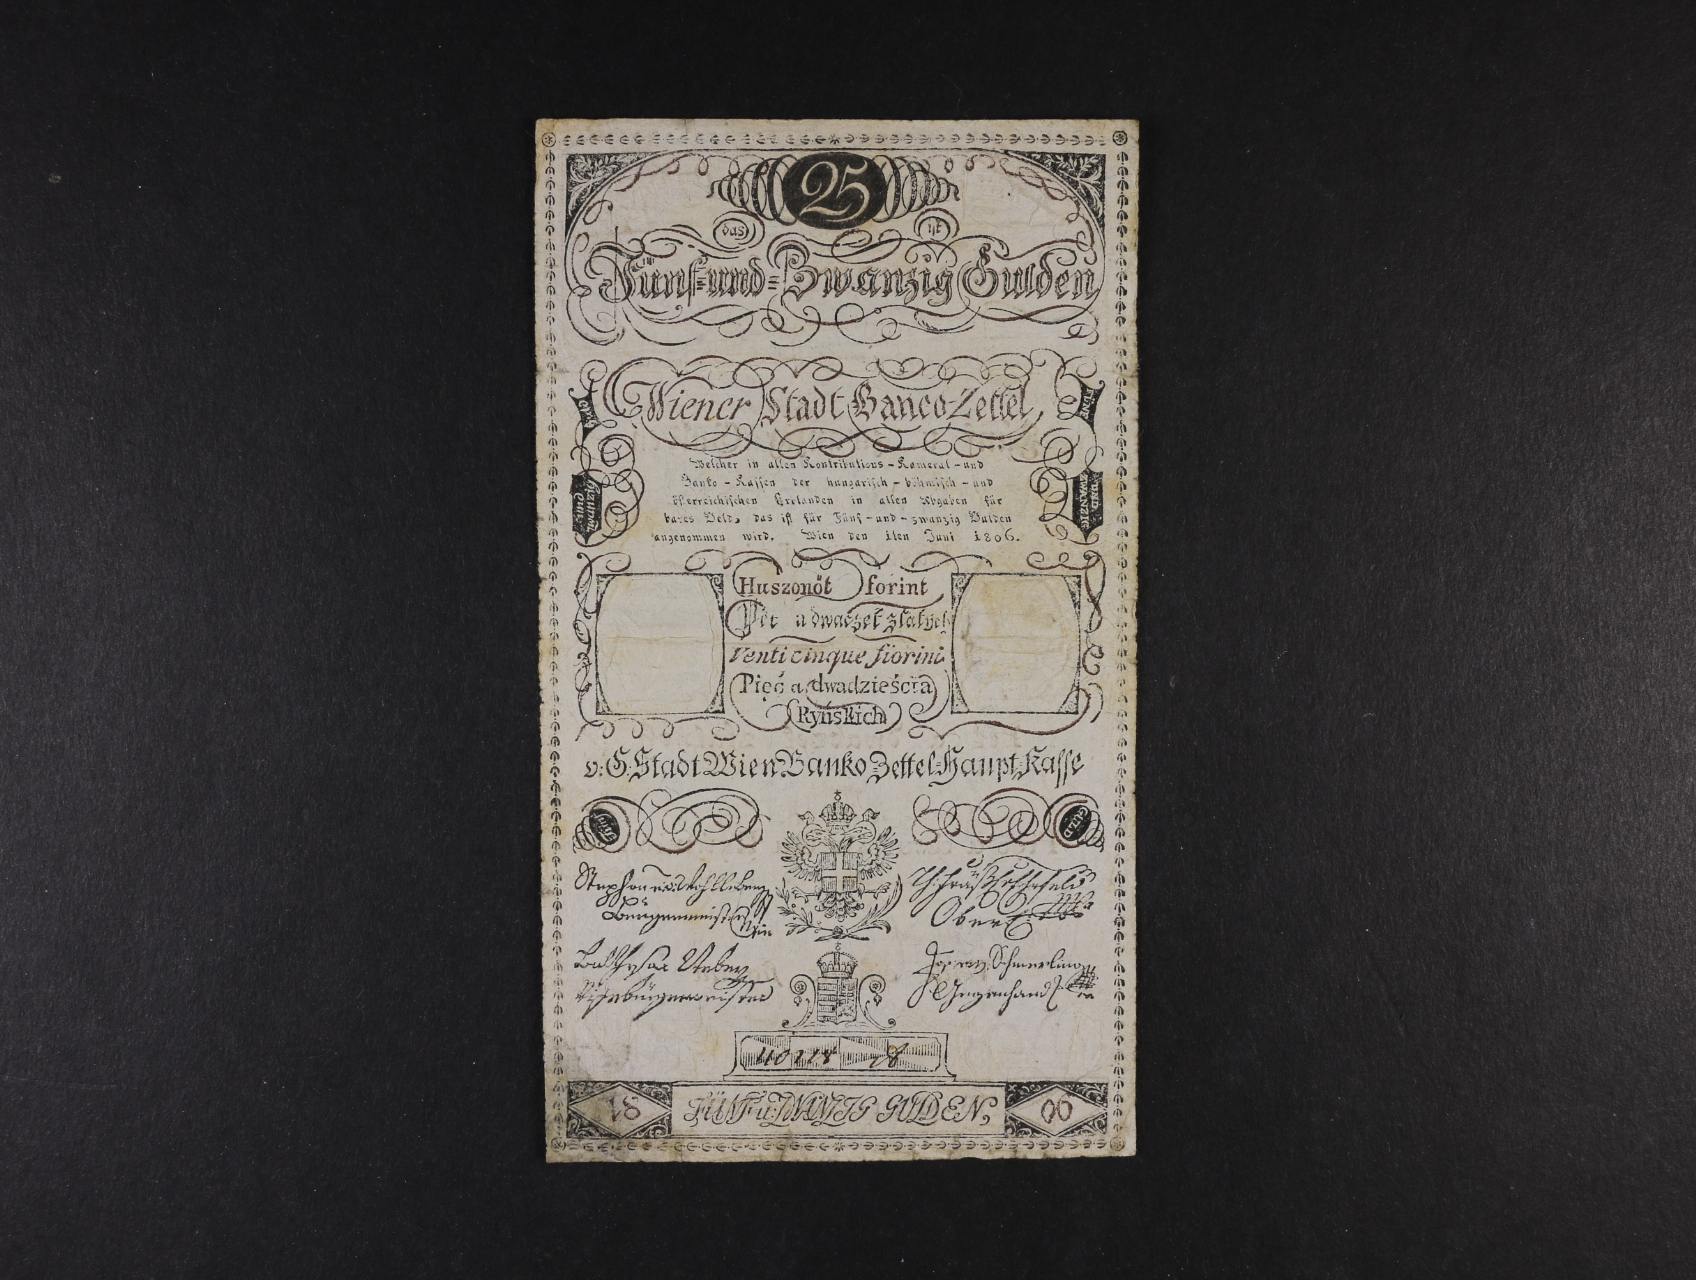 25
das ist
Fünf-und-Zwanzig Gulden
Wiener Stadt Banco-Zettel
Welcher in allen Kontributions-Kameral-und
Banko-Kassen der hungarisch-böhmisch-und
österreichischen Erblanden in allen Abgaben für
bares Geld, das ist für Fünf-und-zwanzig Gulden
angenommen wird. Wien den 1ten Juni 1806.
FÜNF
UND ZWANZIG
Huszonöt forint
Pět a dwaczet zlatych
Venti cinque fiorini
Pięć a dwadzieścia
Ryńskich
v: G: Stadt Wien Banko Zettel Haupt Kasse
GULD
Stephan
Ober
40228 08
18 FÜNF u: ZWANZIG GULDEN, 06